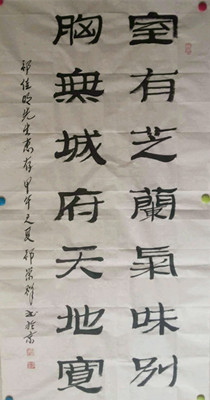 室有芝蘭氣味別
胸無城府天地寬
祁佳明先生惠存甲午之夏祁榮祥书於京